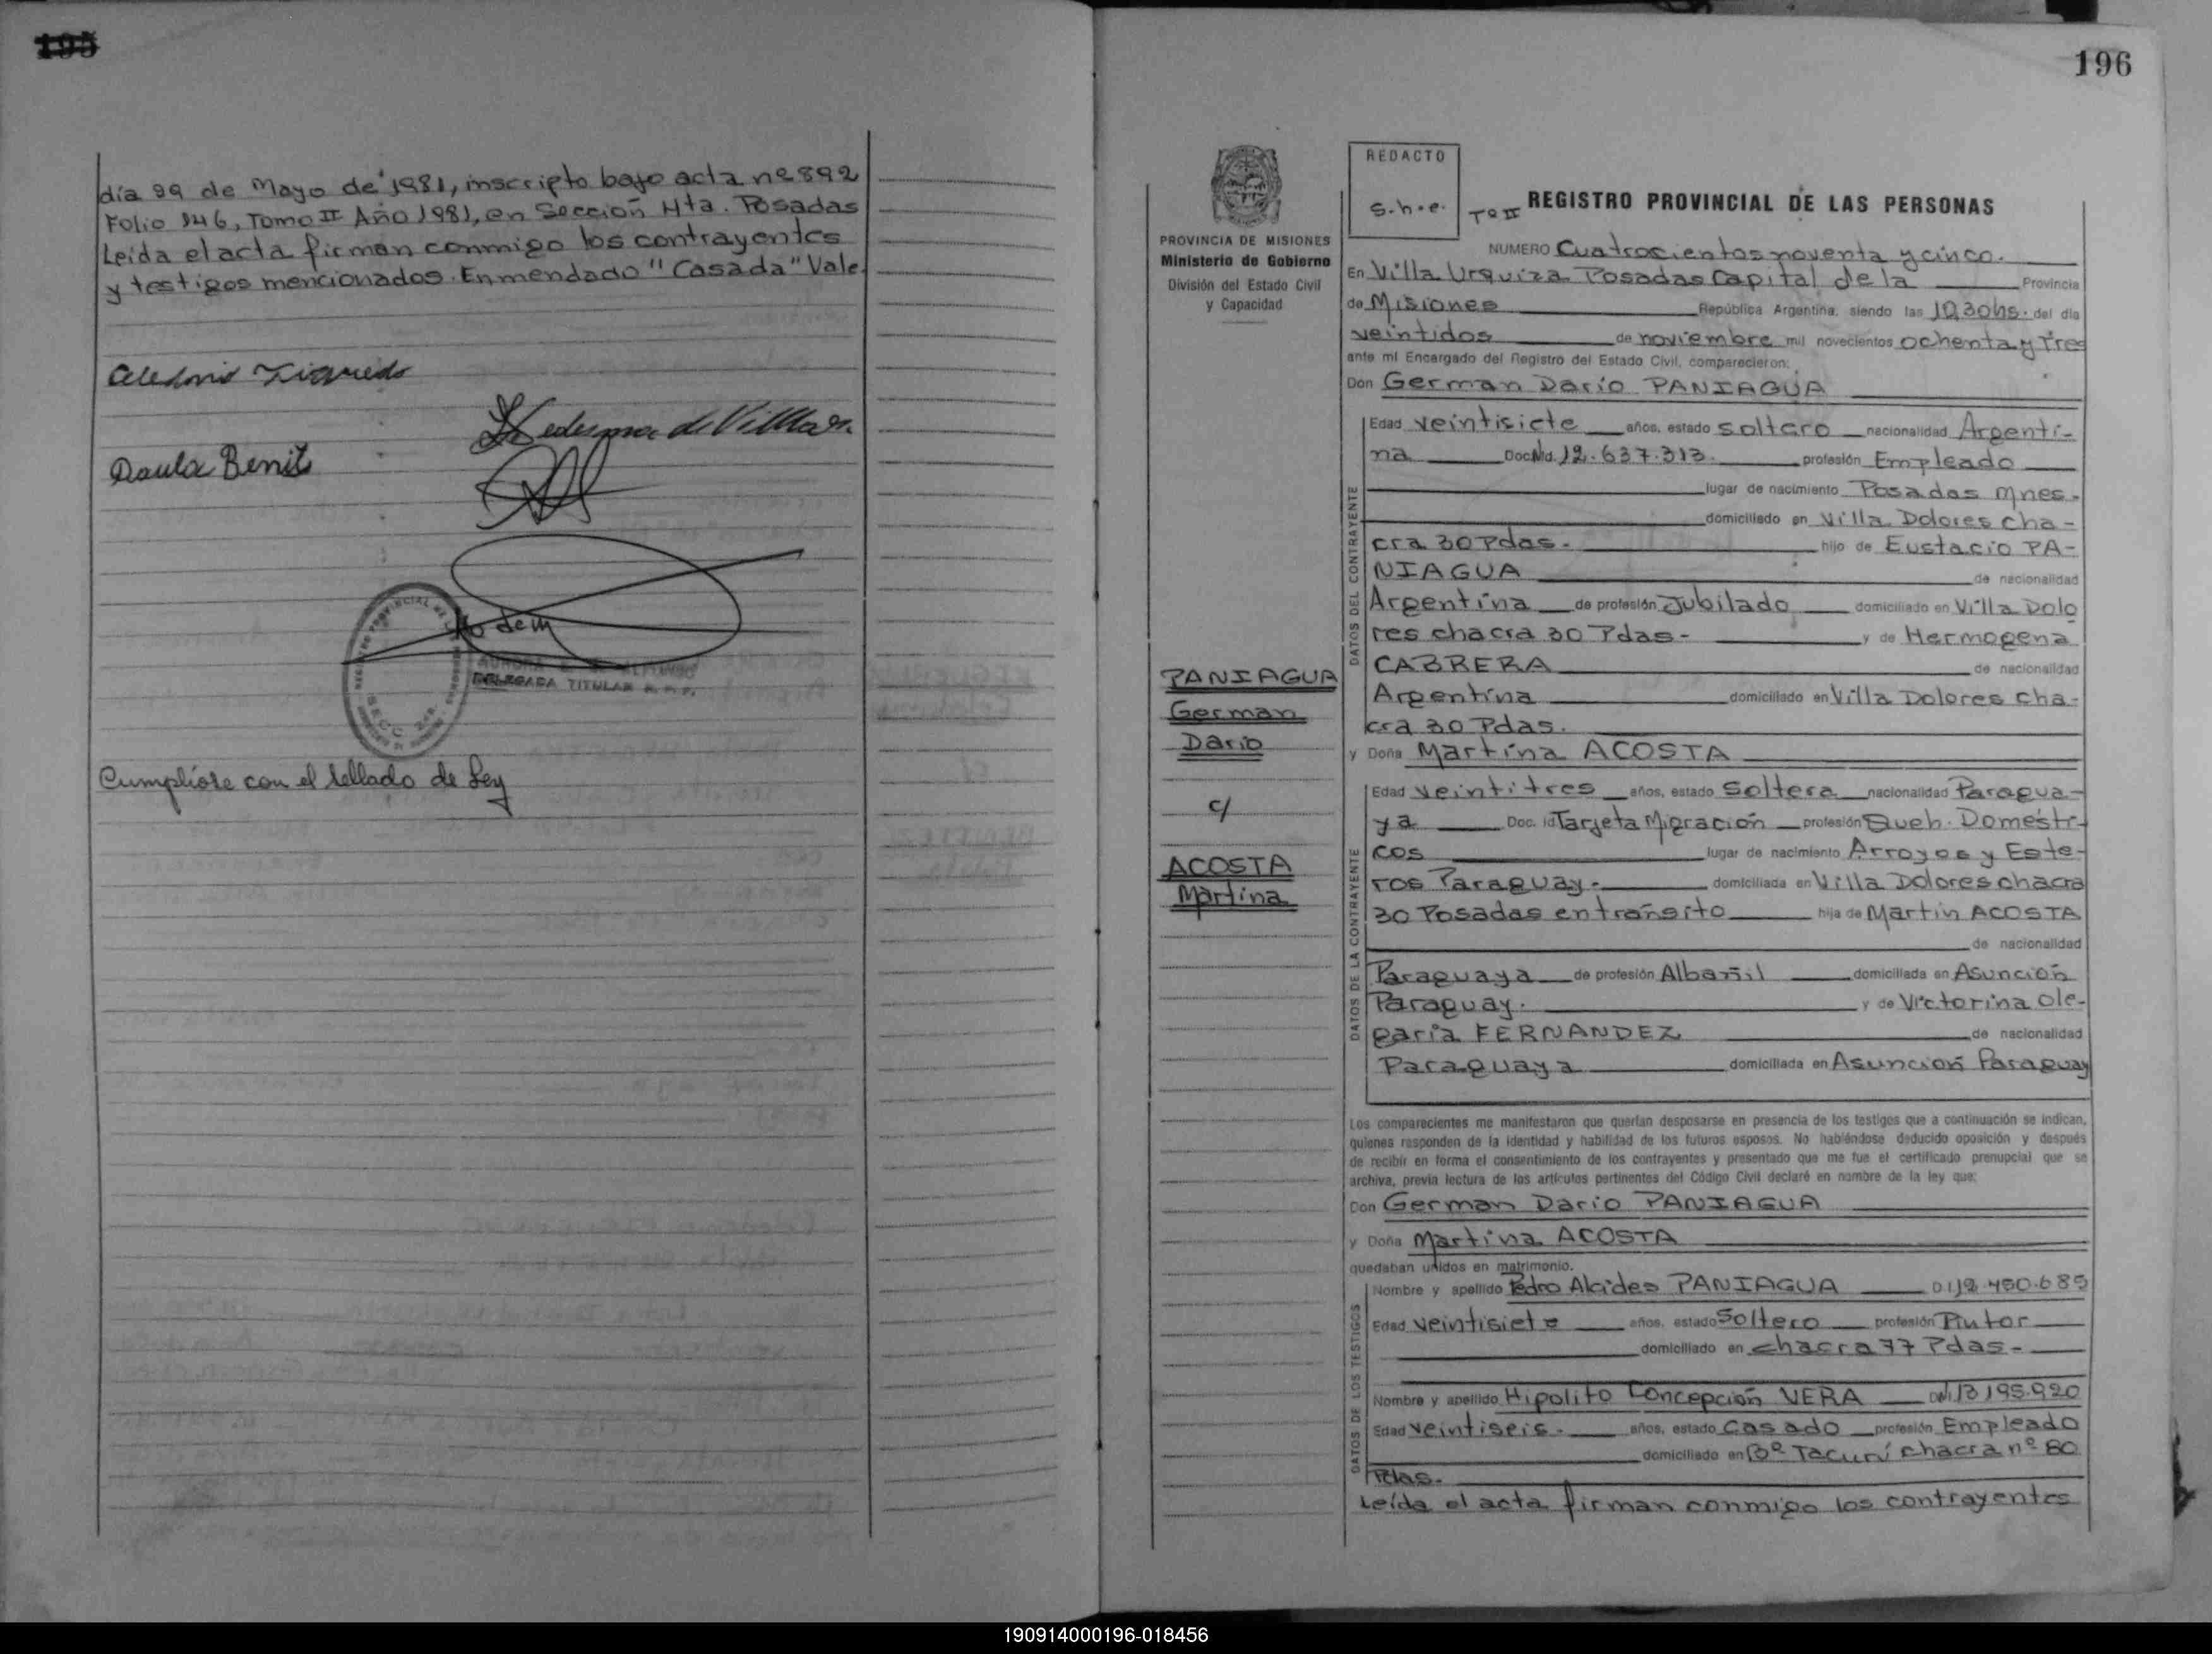 195
día 29 de Mayo de 1981, inscripto bajo acta nº 892
Folio 146, Tomo II Año 1981, en Sección 4ta. Posadas
Leída el acta firman conmigo los contrayentes
y testigos mencionados. Enmendado "Casada" Vale.
Paula Benit
Ledesma de Villar
DELEGADA TITULAR R. P. P.
Cumplióse con el sellado de Ley
196
PROVINCIA DE MISIONES
Ministerio de Gobierno
División del Estado Civil
y Capacidad
PANIAGUA
German
Dario
c/
ACOSTA
Martina
REDACTO
S.h.e.
Tº II REGISTRO PROVINCIAL DE LAS PERSONAS
NUMERO Cuatrocientos noventa y cinco.
En Villa Urquiza Posadas Capital de la Provincia
de Misiones República Argentina, siendo las 10,30hs. del día
veintidos de noviembre mil novecientos ochenta y Tres
ante mí Encargado del Registro del Estado Civil, comparecieron:
Don German Darío PANIAGUA
DATOS DEL CONTRAYENTE
Edad veintisiete años, estado soltero nacionalidad Argenti-
na Doc.Nd. 12.637.313. profesión Empleado
lugar de nacimiento Posadas Mnes.
domiciliado en Villa Dolores cha-
cra 30 Pdas.- hijo de Eustacio PA-
NIAGUA de nacionalidad
Argentina de profesión Jubilado domiciliado en Villa Dolo
res chacra 30 Pdas- y de Hermogena
CABRERA de nacionalidad
Argentina domiciliado en Villa Dolores cha-
cra 30 Pdas.
y Doña Martina ACOSTA
DATOS DE LA CONTRAYENTE
Edad veintitres años, estado Soltera nacionalidad Paragua-
ya Doc. Id Tarjeta Migración profesión Queh. Domésti-
cos lugar de nacimiento Arroyos y Este-
ros Paraguay.- domiciliada en Villa Dolores chacra
30 Posadas en tránsito hija de Martín ACOSTA
de nacionalidad
Paraguaya de profesión Albañil domiciliada en Asunción
Paraguay. y de Victorina Ole-
garia FERNANDEZ de nacionalidad
Paraguaya domiciliada en Asunción Paraguay
Los comparecientes me manifestaron que querían desposarse en presencia de los testigos que a continuación se indican,
quienes responden de la identidad y habilidad de los futuros esposos. No habiéndose deducido oposición y después
de recibir en forma el consentimiento de los contrayentes y presentado que me fue el certificado prenupcial que se
archiva, previa lectura de los artículos pertinentes del Código Civil declaré en nombre de la ley que:
Don German Dario PANIAGUA
y Doña Martina ACOSTA
quedaban unidos en matrimonio.
DATOS DE LOS TESTIGOS
Nombre y apellido Pedro Alcides PANIAGUA DI 12.450.685
Edad veintisiete años, estado Soltero profesión Pintor
domiciliado en chacra 77 Pdas-
Nombre y apellido Hipolito Concepción VERA DNI.13.195.920
Edad veintiseis. años, estado Casado profesión Empleado
domiciliado en Bº Tacurí chacra nº 80
Pdas.
Leída el acta firman conmigo los contrayentes
190914000196-018456